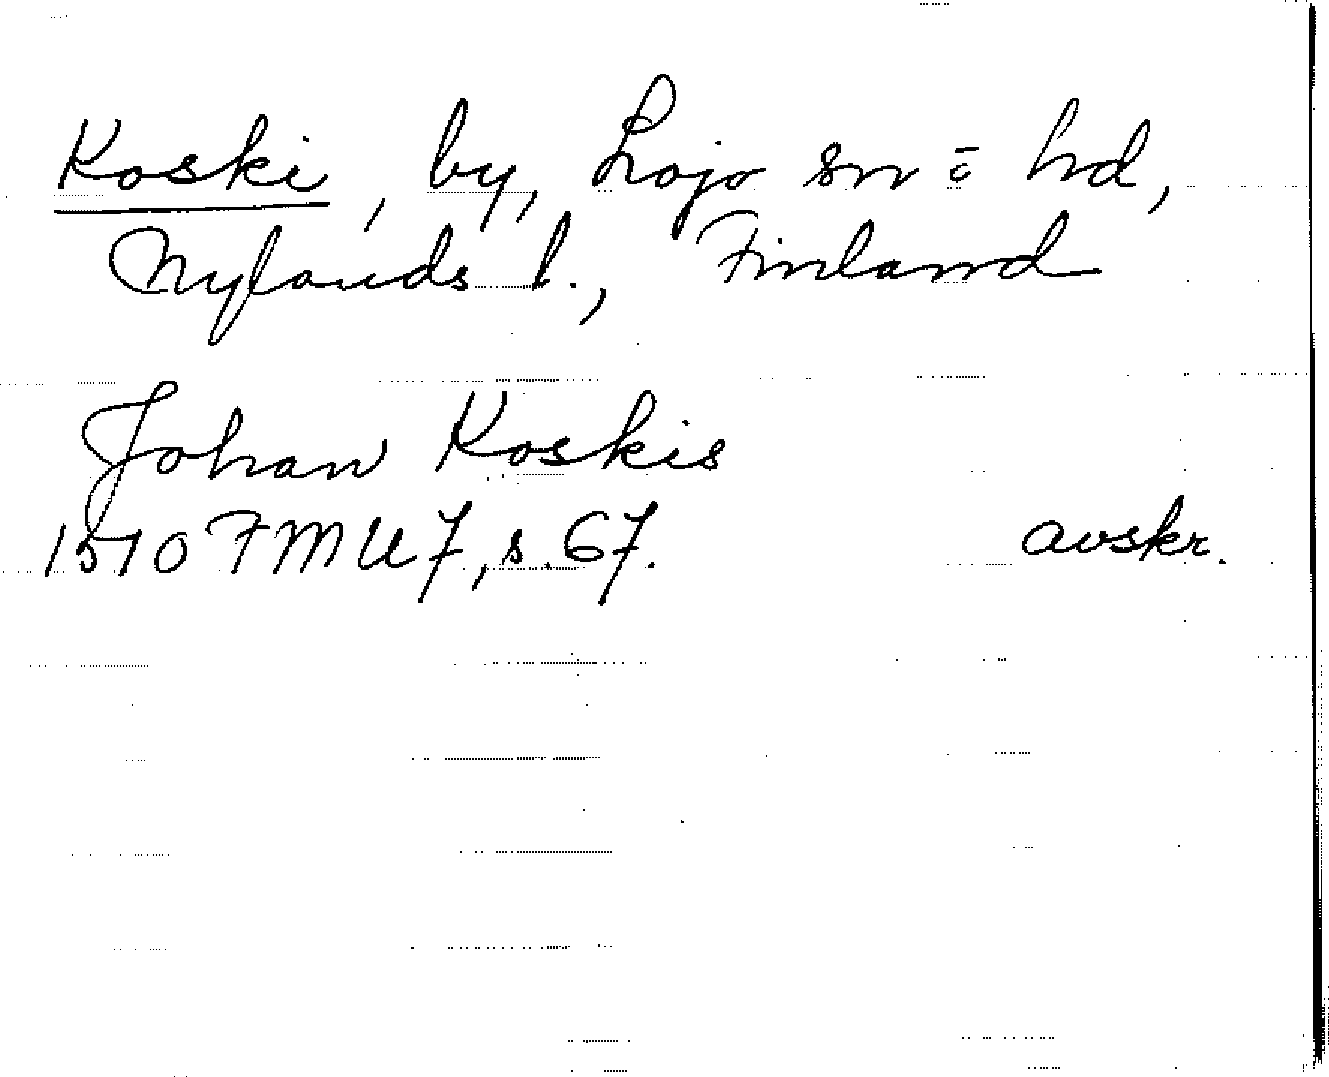 Koski, by, Lojo sn o hd,
Nylands l., Finland
Johan Koskis
1570 FMU 7, s. 67. avskr.